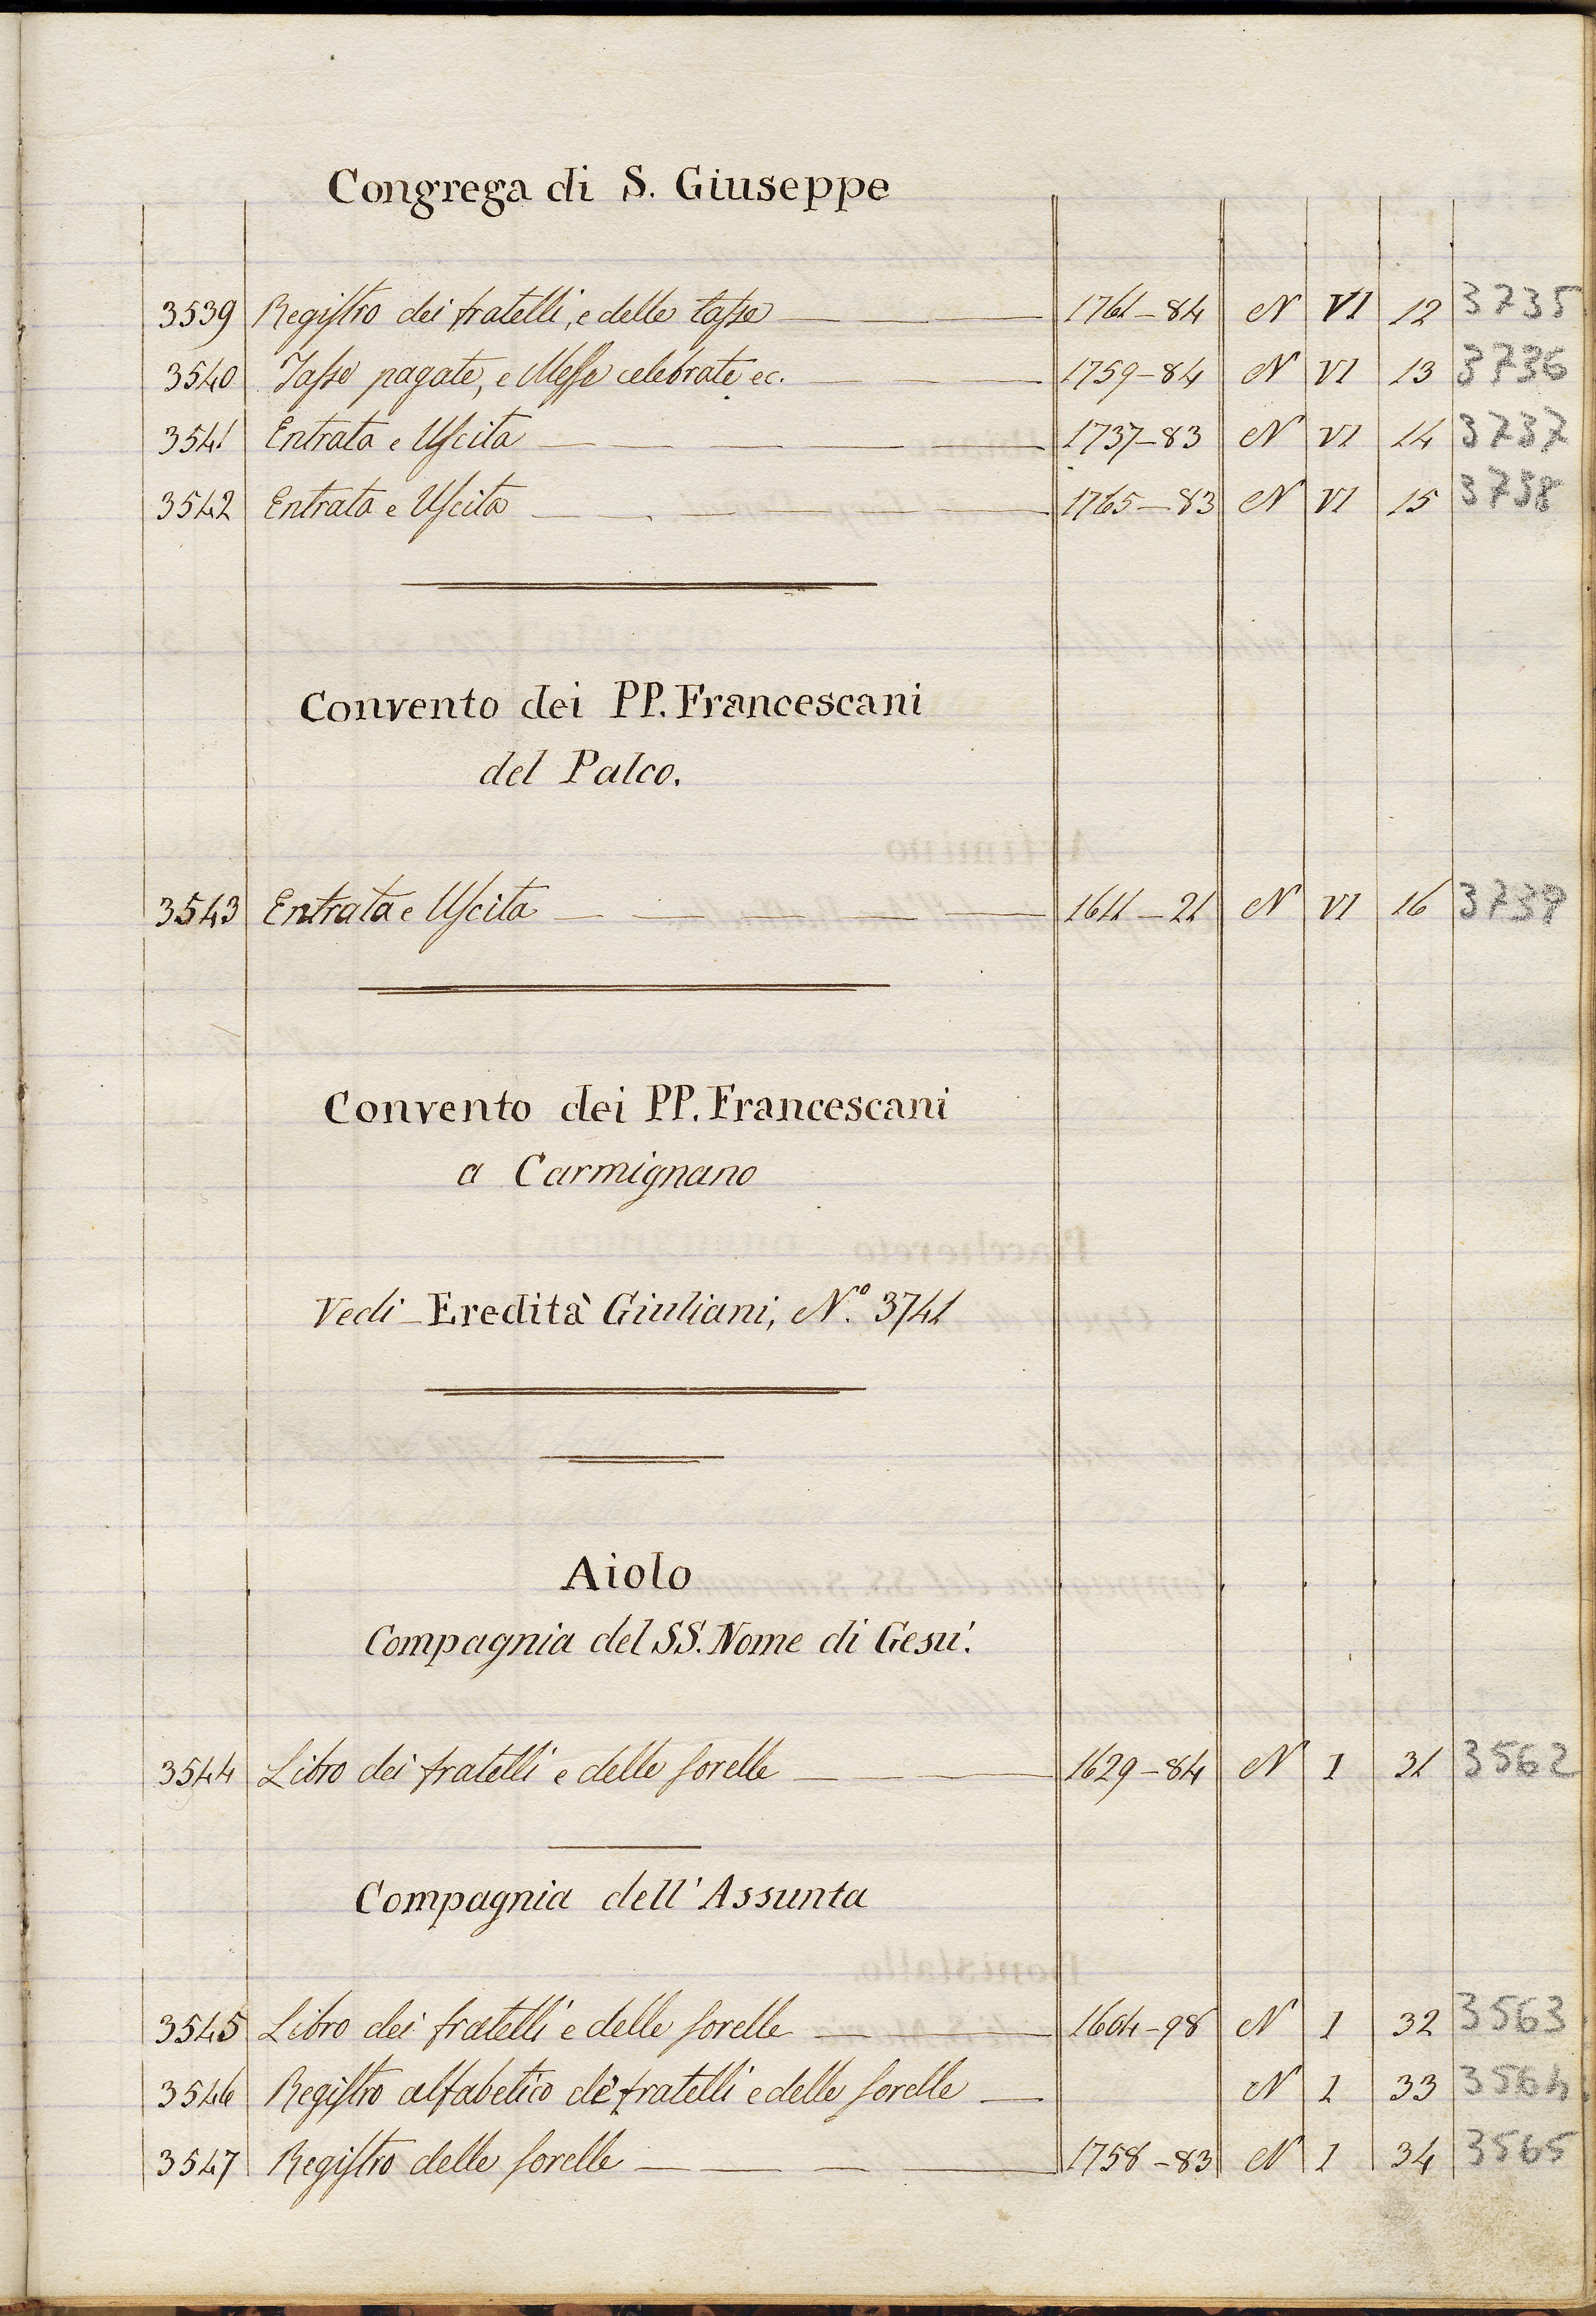 Congrega di S. Giuseppe
3539 Registro dei fratelli, e delle tasse 1761–84 N VI 12 3735
3540 Tasse pagate, e Messe celebrate ec. 1759–84 N VI 13 3736
3541 Entrata e Uscita 1737–83 N VI 14 3737
3542 Entrata e Uscita 1765–83 N VI 15 3738
Convento dei PP. Francescani
del Palco.
3543 Entrata e Uscita 1611–21 N VI 16 3739
Convento dei PP. Francescani
a Carmignano
Vedi – Eredità Giuliani, N.º 3741
Aiolo
Compagnia del SS. Nome di Gesù.
3544 Libro dei fratelli e delle sorelle 1629–84 N I 31 3562
Compagnia dell' Assunta
3545 Libro dei fratelli e delle sorelle 1604–98 N I 32 3563
3546 Registro alfabetico de' fratelli e delle sorelle N I 33 3564
3547 Registro delle sorelle 1758–83 N I 34 3565